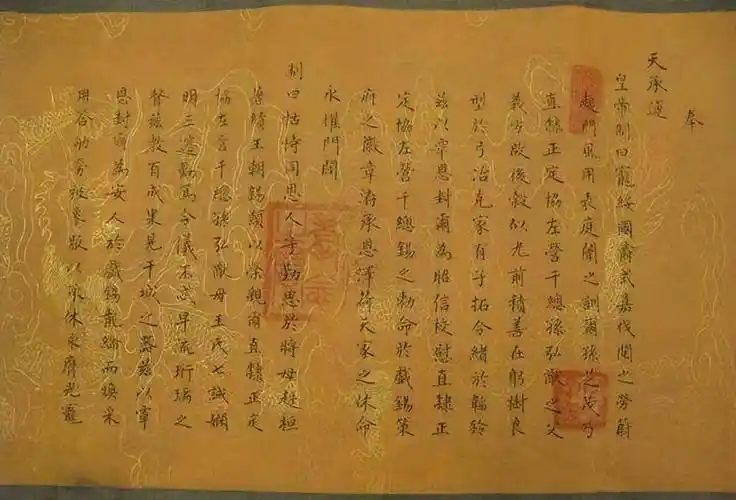 奉
天承運
皇帝制曰寵綏國爵式嘉伐閱之勞蔚
起門風用表庭闈之訓爾孫之茂乃
直隸正定協左營千總孫弘猷之父
義方啟後穀似光前積善在躬樹良
型於弓冶克家有子拓令緒於韜鈐
茲以覃恩封爾為昭信校尉直隸正
定協左營千總錫之勅命於戲錫策
府之徽章洊承恩澤荷天家之休命
永
門閭
制曰怙恃同恩人子勤思於將母赳桓
著績王朝錫類以榮親爾直隸正定
協左營千總孫弘猷母王氏七誡嫻
明三遷勤篤令儀不忒早流珩瑀之
聲慈教有成果見干城之器茲以覃
恩封爾為安人於戲錫龍綸而煥采
用答劬勞被
以承休永膺光寵